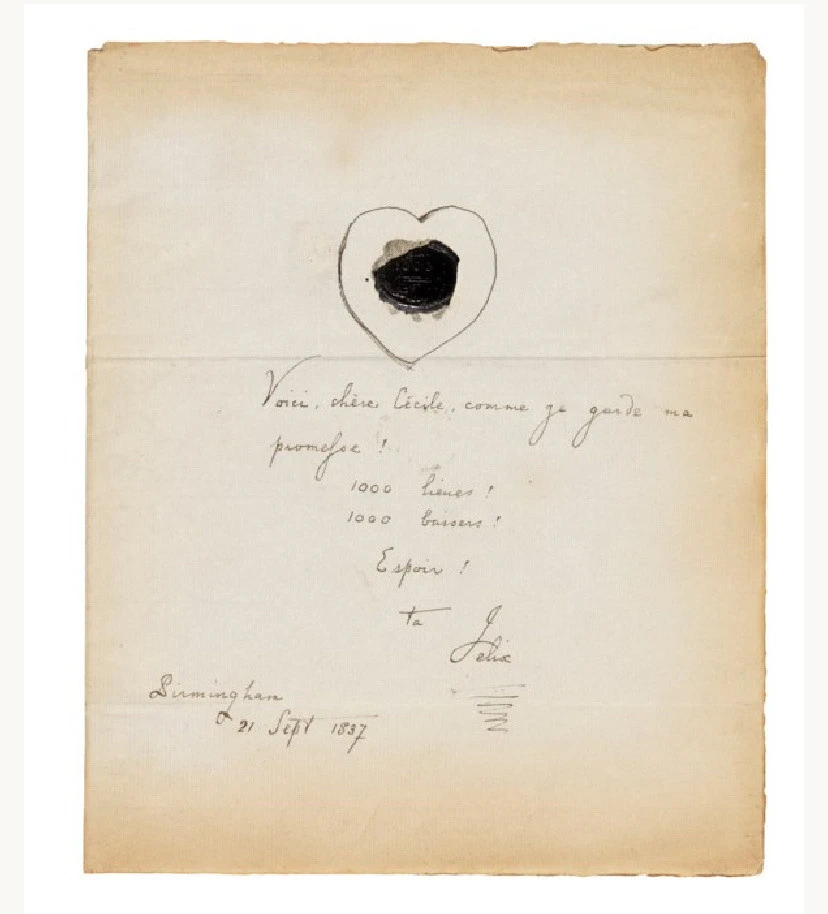 Voici, chère Cécile, comme je garde ma
promesse !
1000 lieues !
1000 baisers !
Espoir !
ta
Felix
Birmingham
21 Sept 1837